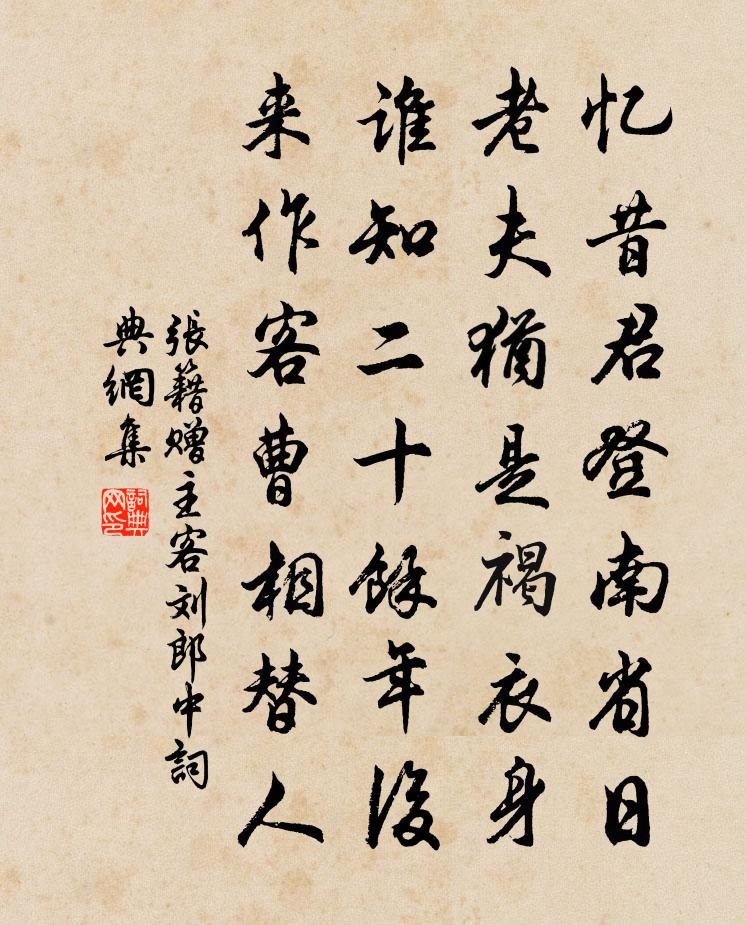 忆昔君登南省日
老夫犹是褐衣身
谁知二十馀年後
来作客曹相替人
張籍赠主客刘郎中詞
典網集
詞典
网印